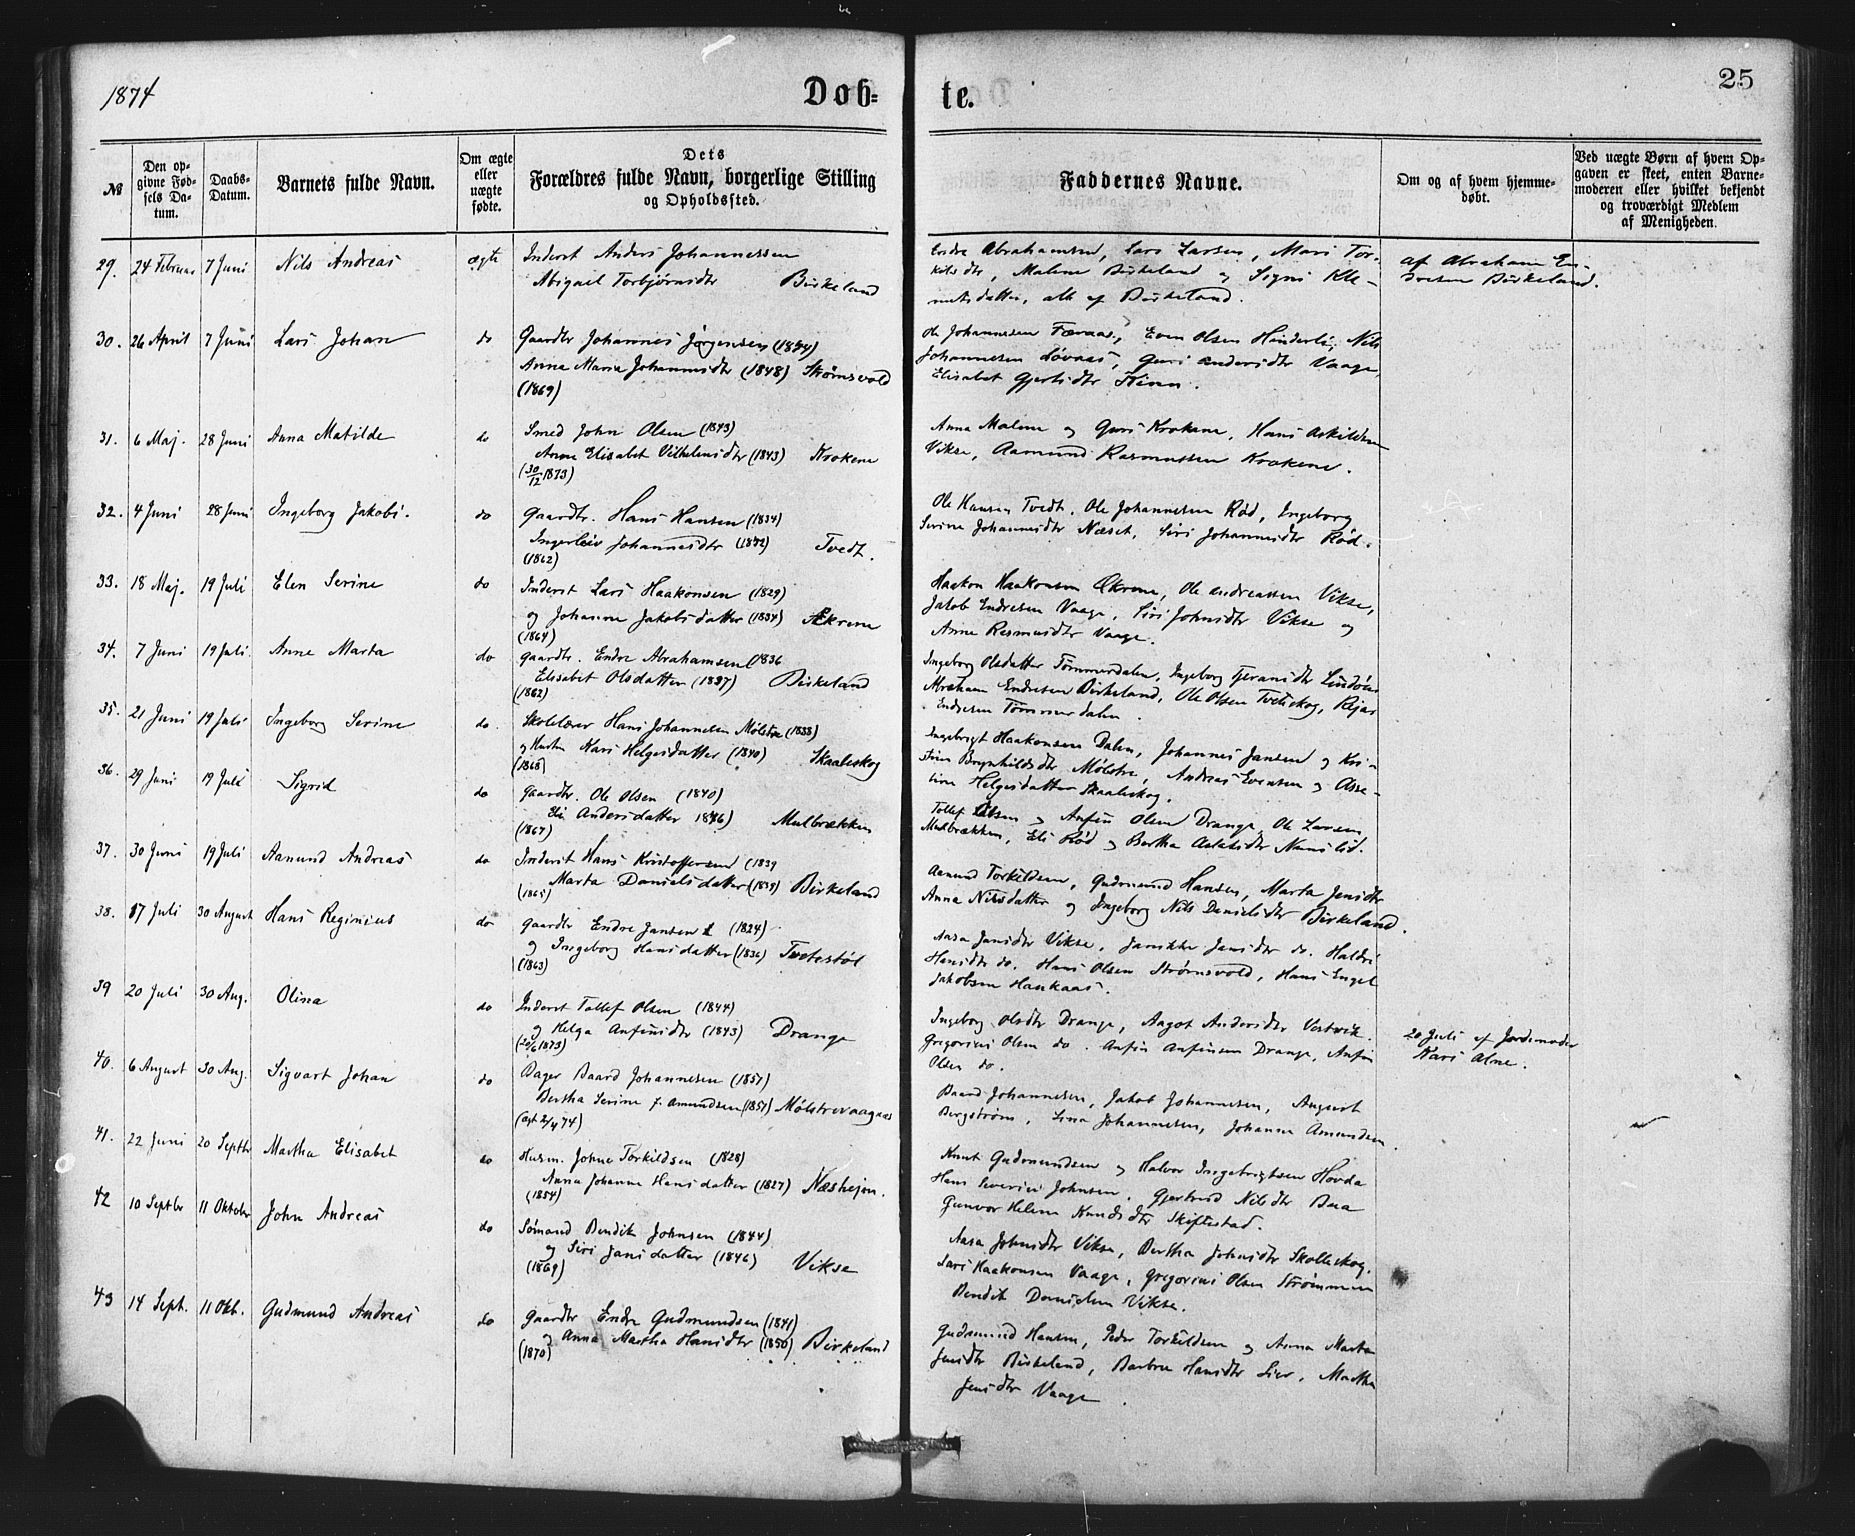 1874 Døb- te. 25
№
Den opgivne Fødsels Datum.
Daabs-Datum.
Barnets fulde Navn.
Om ægte eller uægte fødte.
Dets Forældres fulde Navn, borgerlige Stilling og Opholdssted.
Faddernes Navne.
Om og af hvem hjemmedøbt.
Ved uægte Børn af hvem Opgaven er skeet, enten Barnemoderen eller hvilket bekjendt og troværdigt Medlem af Menigheden.
29. 24 Februar 7 Juni Nils Andreas ægte Inderst Anders Johannessen
Abigael Torbjørnsdtr Birkeland
Endre Abrahamsen, Lars Larsen, Mari Tor-
kilsdtr, Malene Birkeland og Signi Kle-
metsdatter, alle af Birkeland.
af Abraham En-
dresen Birkeland.
30. 26 April 7 Juni Lars Johan do Gaardbr Johannes Jørgensen (1844)
Anna Maria Johannesdtr (1848) Strømsvold
(1869)
Ole Johannesen Færaas, Even Olsen Hinderli, Nils
Johannesen Løvaas, Guri Andersdtr Vaage,
Elisabet Gjertsdtr
31. 6 Maj. 28 Juni Anna Matilde do Smed John Olsen (1843)
Anne Elisabet Vilhelmsdtr (1843) Krokene
(30/12 1873)
Anna Malene og Guri Krokene, Hans Askildsen
Vikse, Aamund Rasmussen Krokene.
32. 4 Juni 28 Juni Ingeborg Jakobi. do Gaardbr. Hans Hansen (1834)
Ingerleiv Johannesdtr (1842) Tvedt.
(1862)
Ole Hansen Tvedt, Ole Johannesen Rød, Ingeborg
Serine Johannesdtr Næset, Siri Johannesdtr Rød.
33. 18 Maj. 19 Juli Elen Serine do Inderst Lars Haakonsen (1829)
og Johanne Jakobsdatter (1834) Ækrene
(1864)
Haakon Haakonsen Ækrene, Ole Andreassen Vikse,
Jakob Endresen Vaage, Siri Johnsdtr Vikse og
Anne Rasmusdtr Vaage.
34. 7 Juni 19 Juli. Anne Marta do Gaardbr. Endre Abrahamsen (1836
Elisabet Olsdatter (1837) Birkeland
(1862)
Ingeborg Olsdatter Tømmerdalen, Ingeborg
Abraham Endresen Birkeland, Ole Olsen Tveteskog,
Endresen Tømmerdalen.
35. 21 Juni 19 Juli Ingeborg Serine do. Skolelærer Hans Johannesen Mølstre (1838)
og Hustru Kari Helgesdatter (1840) Skaaleskog
(1868)
Ingebrigt Haakonsen Dalen, Johannes Jansen og Kri-
stine Brynhildsdtr Mølstre, Andreas Evensen og Asse-
line Helgesdatter Skaaleskog.
36. 29 Juni 19 Juli Sigrid do Gaardbr. Ole Olsen (1840)
Eli Andersdatter 1846) Mulbrækken
(1867)
Tollef Olsen og Anfin Olsen Drange, Ole Larsen
Mulbrækken, Eli Rød og Bertha
37. 30 Juni 19 Juli Aamund Andreas do Inderst Hans Kristoffersen (1839
Marta Danielsdatter (1839) Birkeland
(1865)
Aamund Torkildsen, Gudmund Hansen, Marta Jensdtr
Anna Nilsdatter og Ingeborg Nils Danielsdtr Birkeland.
38. 17 Juli 30 August Hans Reginius do Gaardbr Endre Jansen (1824)
og Ingeborg Hansdatter (1836) Tvetestøl
(1863)
Aasa Jansdtr Vikse, Jannikke Jansdtr do. Haldri
Hansdtr do. Hans Olsen Strømsvold, Hans Engel
Jakobsen Haukaas.
39 20 Juli 30 Aug. Olina do Inderst Tollef Olsen (1844)
og Helga Anfinsdtr (1843) Drange
(20/6 1873)
Ingeborg Olsdtr Drange, Aagot Andersdtr Vestvik.
Gregorius Olsen do. Anfin Anfinsen Drange, Anfin
Olsen do.
20 Juli af Jordemoder
Kari Alne.
40. 6 August 30 Aug. Sigvart Johan do Bager Baard Johannesen (1851)
Bertha Serine f. Amundsen (1851) Mølstrevaagen
(ægt 2/4 74)
Baard Johannesen, Jakob Johannesen, August
Bergstrøm, Lina Johannesen, Johanne Amundsen
41. 22 Juni 20 Septbr Martha Elisabet do Husm. Johne Torkildsen (1828)
Anna Johanne Hansdatter (1827) Næshejen.
(1854)
Knut Gudmundsen og Halvor Ingebrigtsen Hovda
Hans Severin Johnsen. Gjertrud Nilsdtr Baa
Gunvor Helene Knudsdtr Skiftestad.
42 10 Septbr 11 Oktober John Andreas do Sømand Bendik Johnsen (1844)
og Siri Jansdatter (1846) Vikse
(1869)
Aasa Johnsdtr Vikse, Bertha Johnsdtr Skolleskog.
Lars Haakonsen Vaage, Gregorius Olsen Strømmen
Bendik Danielsen Vikse.
43 14 Sept. 11 Okb. Gudmund Andreas do Gaardbr Endre Gudmundsen (1841)
og Anna Martha Hansdtr (1850) Birkeland
(1870)
Gudmund Hansen, Peder Torkildsen og Anna Marta
Jensdtr Birkeland, Barbra Hansdtr Lier, Martha
Jensdtr Vaage